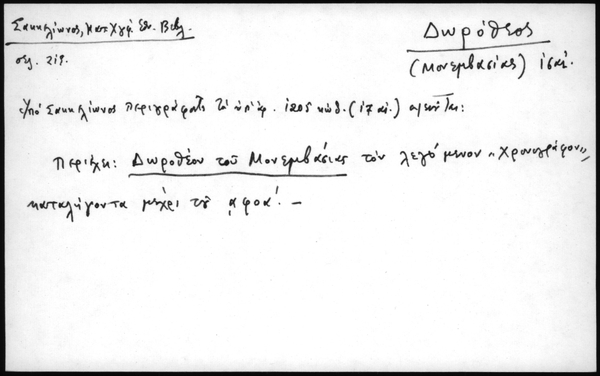 Σακκελίωνος, Κατ. Χγφ. Εθν. Βιβλ.
σελ. 219.
Δωρόθεος
(Μονεμβασίας) ις αι.
Υπό Σακκελίωνος περιγράφεται το υπ' αρ. 1205 κώδ. (17 αι.)
Περιέχει: Δωροθέου του Μονεμβασίας τον λεγόμενον „Χρονογράφον„,
καταλήγοντα μέχρι του ͵αφοα'. —